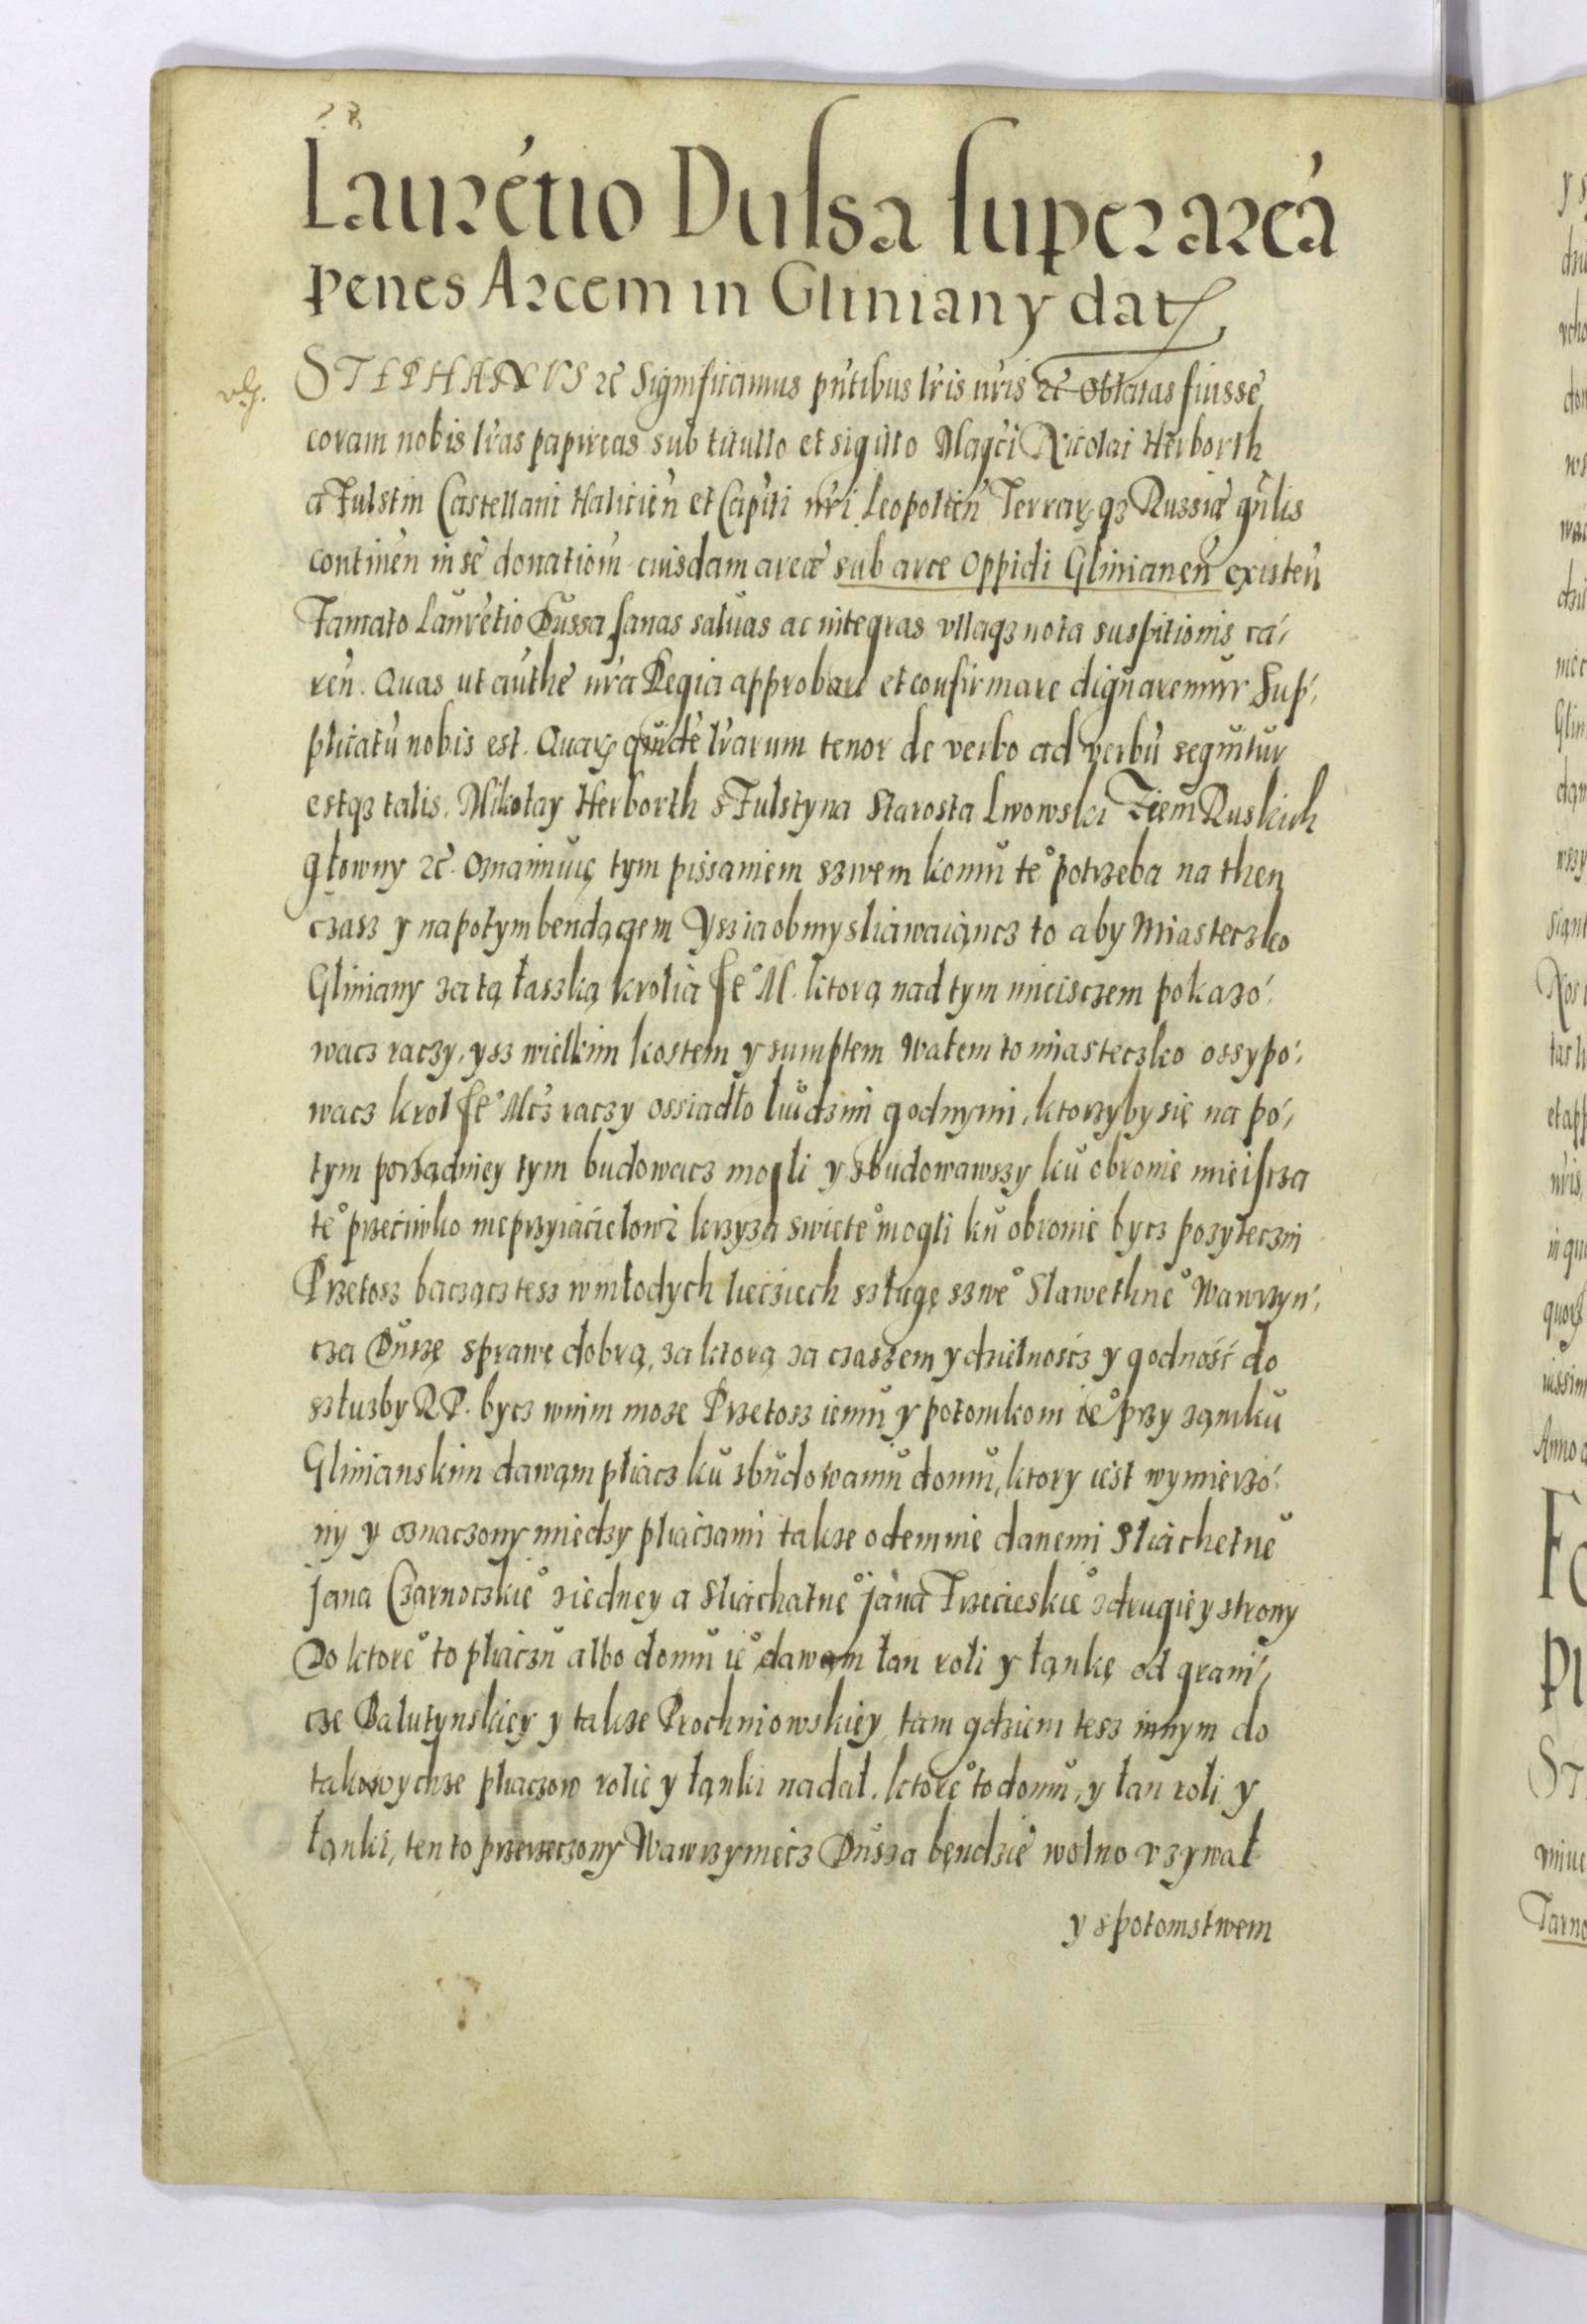 28
Laurētio Dussa super areā
penes Arcem in Gliniany dat
STEPHANVS &c̄ Significamus pn̄tibus lr̄is nr̄is &c̄ Oblatas fuisse
coram nobis lr̄as papireas sub titullo et sigillo Mag̃ci Nicolai Herborth
a Fulstin Castellani Halicien̄ et Capiti nr̄i Leopolien̄ Terrarꝝ qȝ Russiæ gn̄lis
continen̄ in sē donatiom̄ cuisdam areæ sub arce Oppidi Glinianen̄ existen̄
Famato Laurētio Dussa sanas saluas ac integras vllaqȝ nota suspitionis ca/
ren̄. Quas ut authē nr̄a Regia approbare et confirmare dignaremur Sup/
plicatū nobis est. Quarꝝ quidē lr̄arum tenor de verbo ad verbū sequitur
estqȝ talis. Mikołay Herborth s Fulstyna Starosta Lwowski Ziem Ruskich
głowny &c̄. Oznaimuię tym pissaniem szwem komu te° potrzeba na then
czasz y napotym bendączem Ysz ia obmysliawaiąncz to aby Miasteczko
Gliniany za tą łaszką krolia Je° M. ktorą nad tym mieisczem pokazo/
wacz raczy, ysz wielkim kostem y sumptem Wałem to miasteczko ossypo/
wacz krol Je° Mcz raczy ossiadło ludzmi godnymi, ktorzyby się na po/
tym porządniey tym budowacz mogli y zbudowawszy ku obronie mieiscza
te° przeciwko nieprzyiacielowi krzyza swięte° mogli ku obronie bycz pozyteczni
Przetosz baczącz tesz w młodych lieciech szługę szwe° Slawethne° Wawrzyn/
cza Duszę sprawę dobrą, za ktorą za czaszem y dzielnoscz y godność do
szłuzby RP. bycz w nim moze Przetosz iemu y potomkom ie° przy zamku
Glinianskim dawam pliacz ku zbudowaniu domu, ktory iest wymierzo/
ny y oznaczony miedzy pliaczami takze odemnie danemi Sliachetne°
Jana Czarnoczkie° z iedney a Sliachatne° Jana Trzecieskie° z drugiey strony
Do ktore° to pliaczu albo domu ie° dawam łan roli y łąnkę od grani/
cze Balutynskiey y takze Prochniowskiey, tam gdziem tesz innym do
takowychze pliaczow rolie y łąnki nadał. ktore° to domu, y łan roli y
łąnki, ten to przerzeczony Wawrzyniecz Dusza będzie wolno vzywał
y s potomstwem